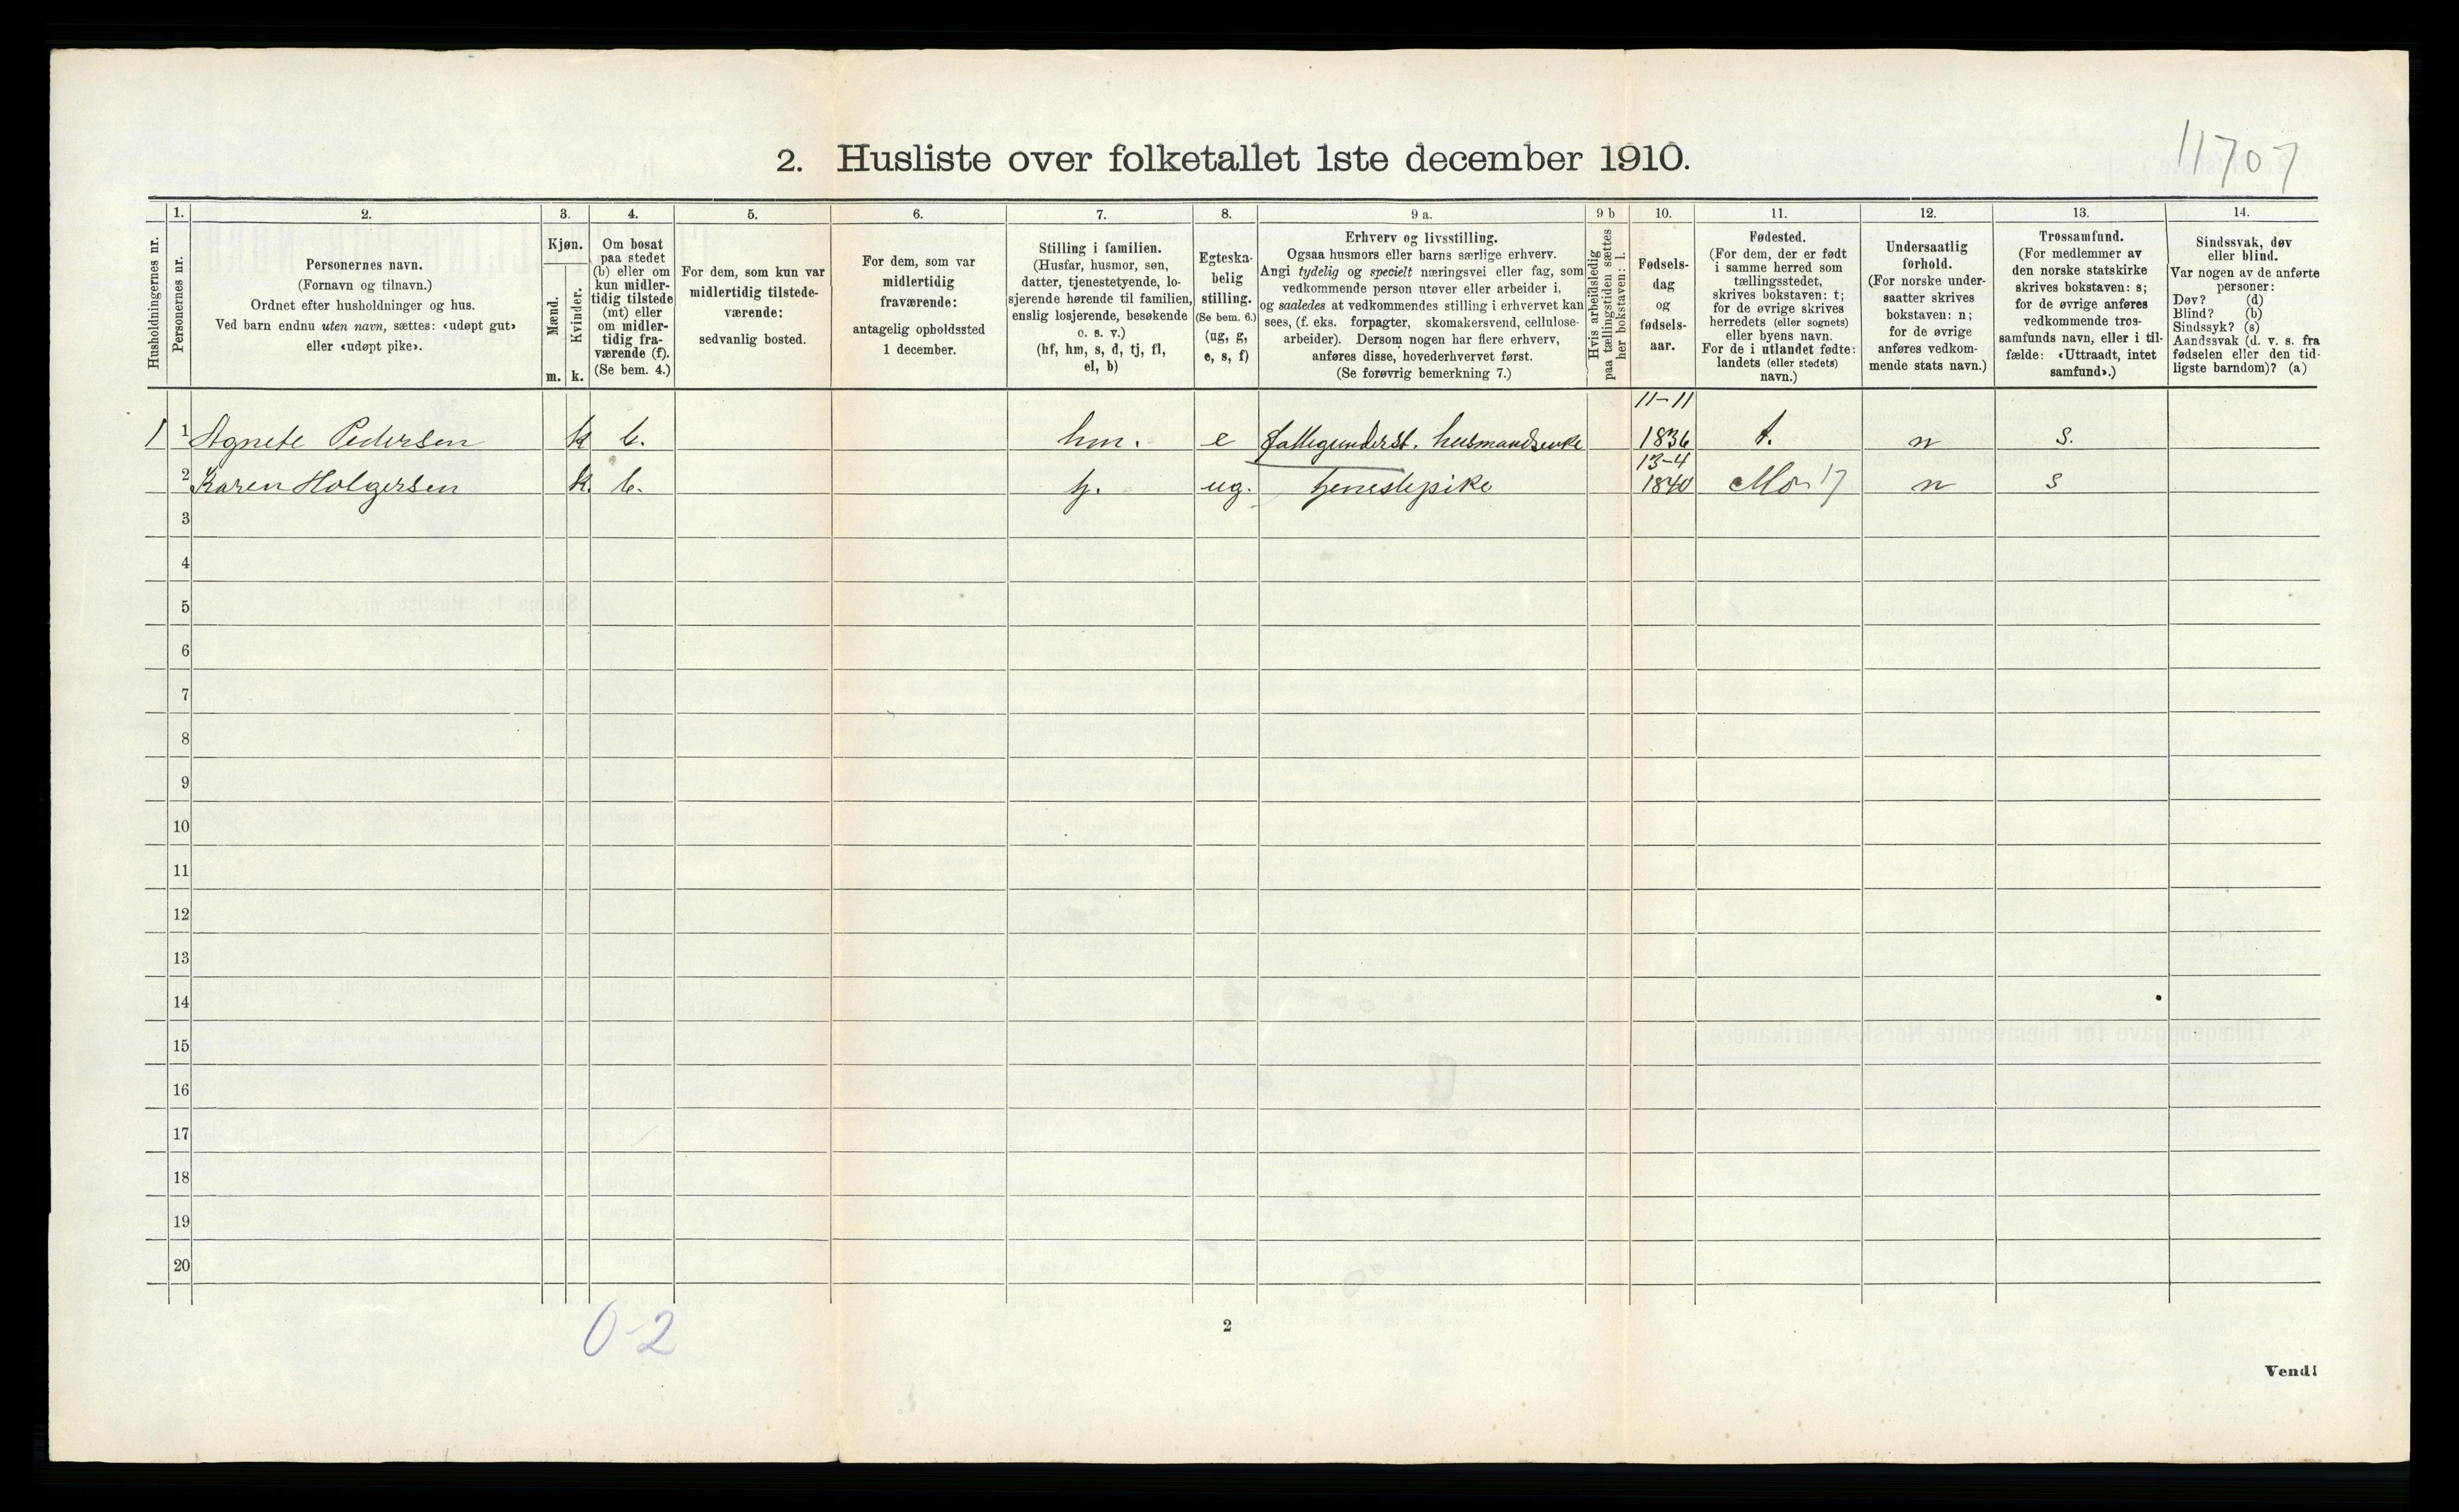 11707
2. Husliste over folketallet 1ste december 1910.
Husholdningernes nr.
1.
Personernes nr.
2.
Personernes navn.
(Fornavn og tilnavn.)
Ordnet efter husholdninger og hus.
Ved barn endnu uten navn, sættes: «udøpt gut»
eller «udøpt pike».
3.
Kjøn.
Mænd.
Kvinder.
m. k.
4.
Om bosat
paa stedet
(b) eller om
kun midler-
tidig tilstede
(mt) eller
om midler-
tidig fra-
værende (f).
(Se bem. 4.)
5.
For dem, som kun var
midlertidig tilstede-
værende:
sedvanlig bosted.
6.
For dem, som var
midlertidig
fraværende:
antagelig opholdssted
1 december.
7.
Stilling i familien.
(Husfar, husmor, søn,
datter, tjenestetyende, lo-
sjerende hørende til familien,
enslig losjerende, besøkende
o. s. v.)
(hf, hm, s, d, tj, fl,
el, b)
8.
Egteska-
belig
stilling.
(Se bem. 6.)
(ug, g,
e, s, f)
9 a.
Erhverv og livsstilling.
Ogsaa husmors eller barns særlige erhverv.
Angi tydelig og specielt næringsvei eller fag, som
vedkommende person utøver eller arbeider i,
og saaledes at vedkommendes stilling i erhvervet kan
sees, (f. eks. forpagter, skomakersvend, cellulose-
arbeider). Dersom nogen har flere erhverv,
anføres disse, hovederhvervet først.
(Se forøvrig bemerkning 7.)
9 b
Hvis arbeidsledig
paa tællingstiden sættes
her bokstaven: l.
10.
Fødsels-
dag
og
fødsels-
aar.
11.
Fødested.
(For dem, der er født
i samme herred som
tællingsstedet,
skrives bokstaven: t;
for de øvrige skrives
herredets (eller sognets)
eller byens navn.
For de i utlandet fødte:
landets (eller stedets)
navn.)
12.
Undersaatlig
forhold.
(For norske under-
saatter skrives
bokstaven: n;
for de øvrige
anføres vedkom-
mende stats navn.)
13.
Trossamfund.
(For medlemmer av
den norske statskirke
skrives bokstaven: s;
for de øvrige anføres
vedkommende tros-
samfunds navn, eller i til-
fælde: «Uttraadt, intet
samfund».)
14.
Sindssvak, døv
eller blind.
Var nogen av de anførte
personer:
Døv? (d)
Blind? (b)
Sindssyk? (s)
Aandssvak (d. v. s. fra
fødselen eller den tid-
ligste barndom)? (a)
11-11
1 1 Agnete Pedersen k b. hm. e fattigunderst. husmandsenke 1836 t. n s.
13-4
2 Karen Holgersen k. b. tj. ug. tjenestepike 1840 Mo 17 n s
3
4
5
6
7
8
9
10
11
12
13
14
15
16
17
18
19
20
0-2
2
Vend!